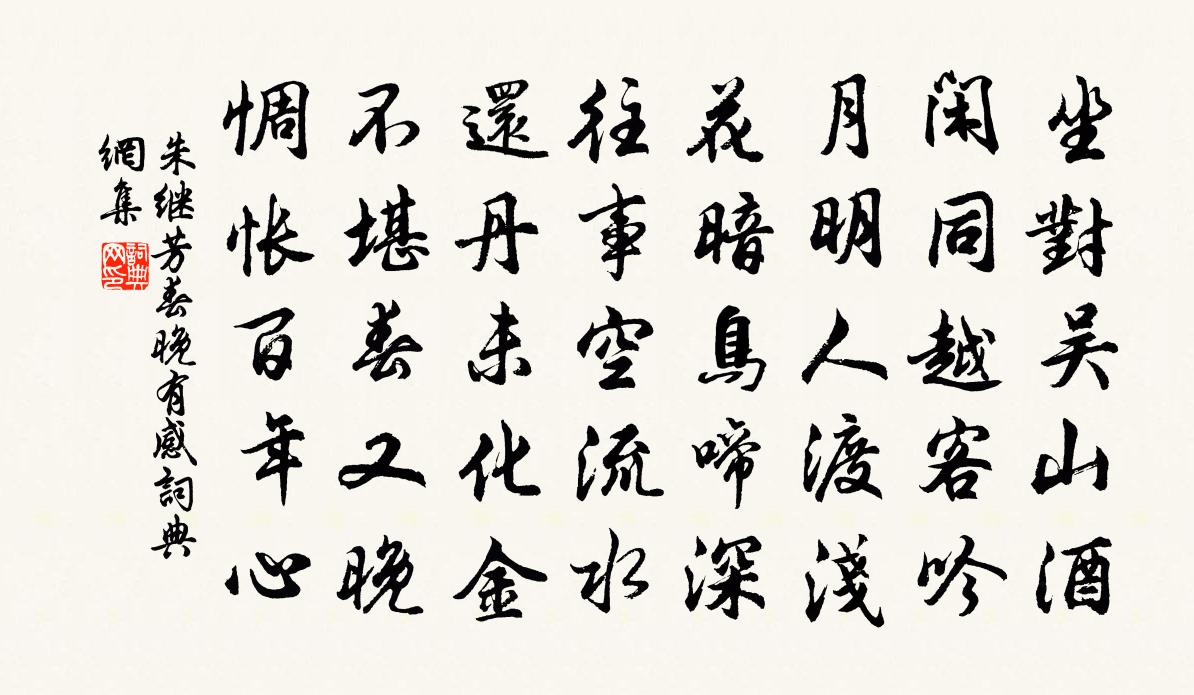 坐對吴山酒
閑同越客吟
月明人渡淺
花暗鳥啼深
往事空流水
還丹未化金
不堪春又晚
惆悵百年心
朱继芳春晚有感詞典
網集
詞典
网印